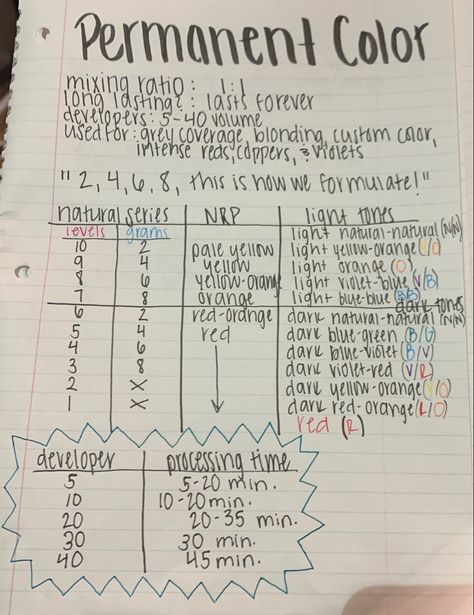 Permanent Color
mixing ratio: 1:1
long lasting?: lasts forever
developers: 5-40 volume
used for: grey coverage, blonding, custom color,
intense reds, coppers, & violets
"2, 4, 6, 8, this is how we formulate!"
natural series NRP light tones
levels grams light natural-natural (N/N)
10 2 pale yellow light yellow-orange (Y/O)
9 4 yellow light orange (O)
8 6 yellow-orange light violet-blue (V/B)
7 8 orange light blue-blue (BB)
dark tones
6 2 red-orange dark natural-natural (N/N)
5 4 red dark blue-green (B/G)
4 6 dark blue-violet (B/V)
3 8 dark violet-red (V/R)
2 X dark yellow-orange (Y/O)
1 X dark red-orange (R/O)
red (R)
developer processing time
5 5-20 min.
10 10-20 min.
20 20-35 min.
30 30 min.
40 45 min.